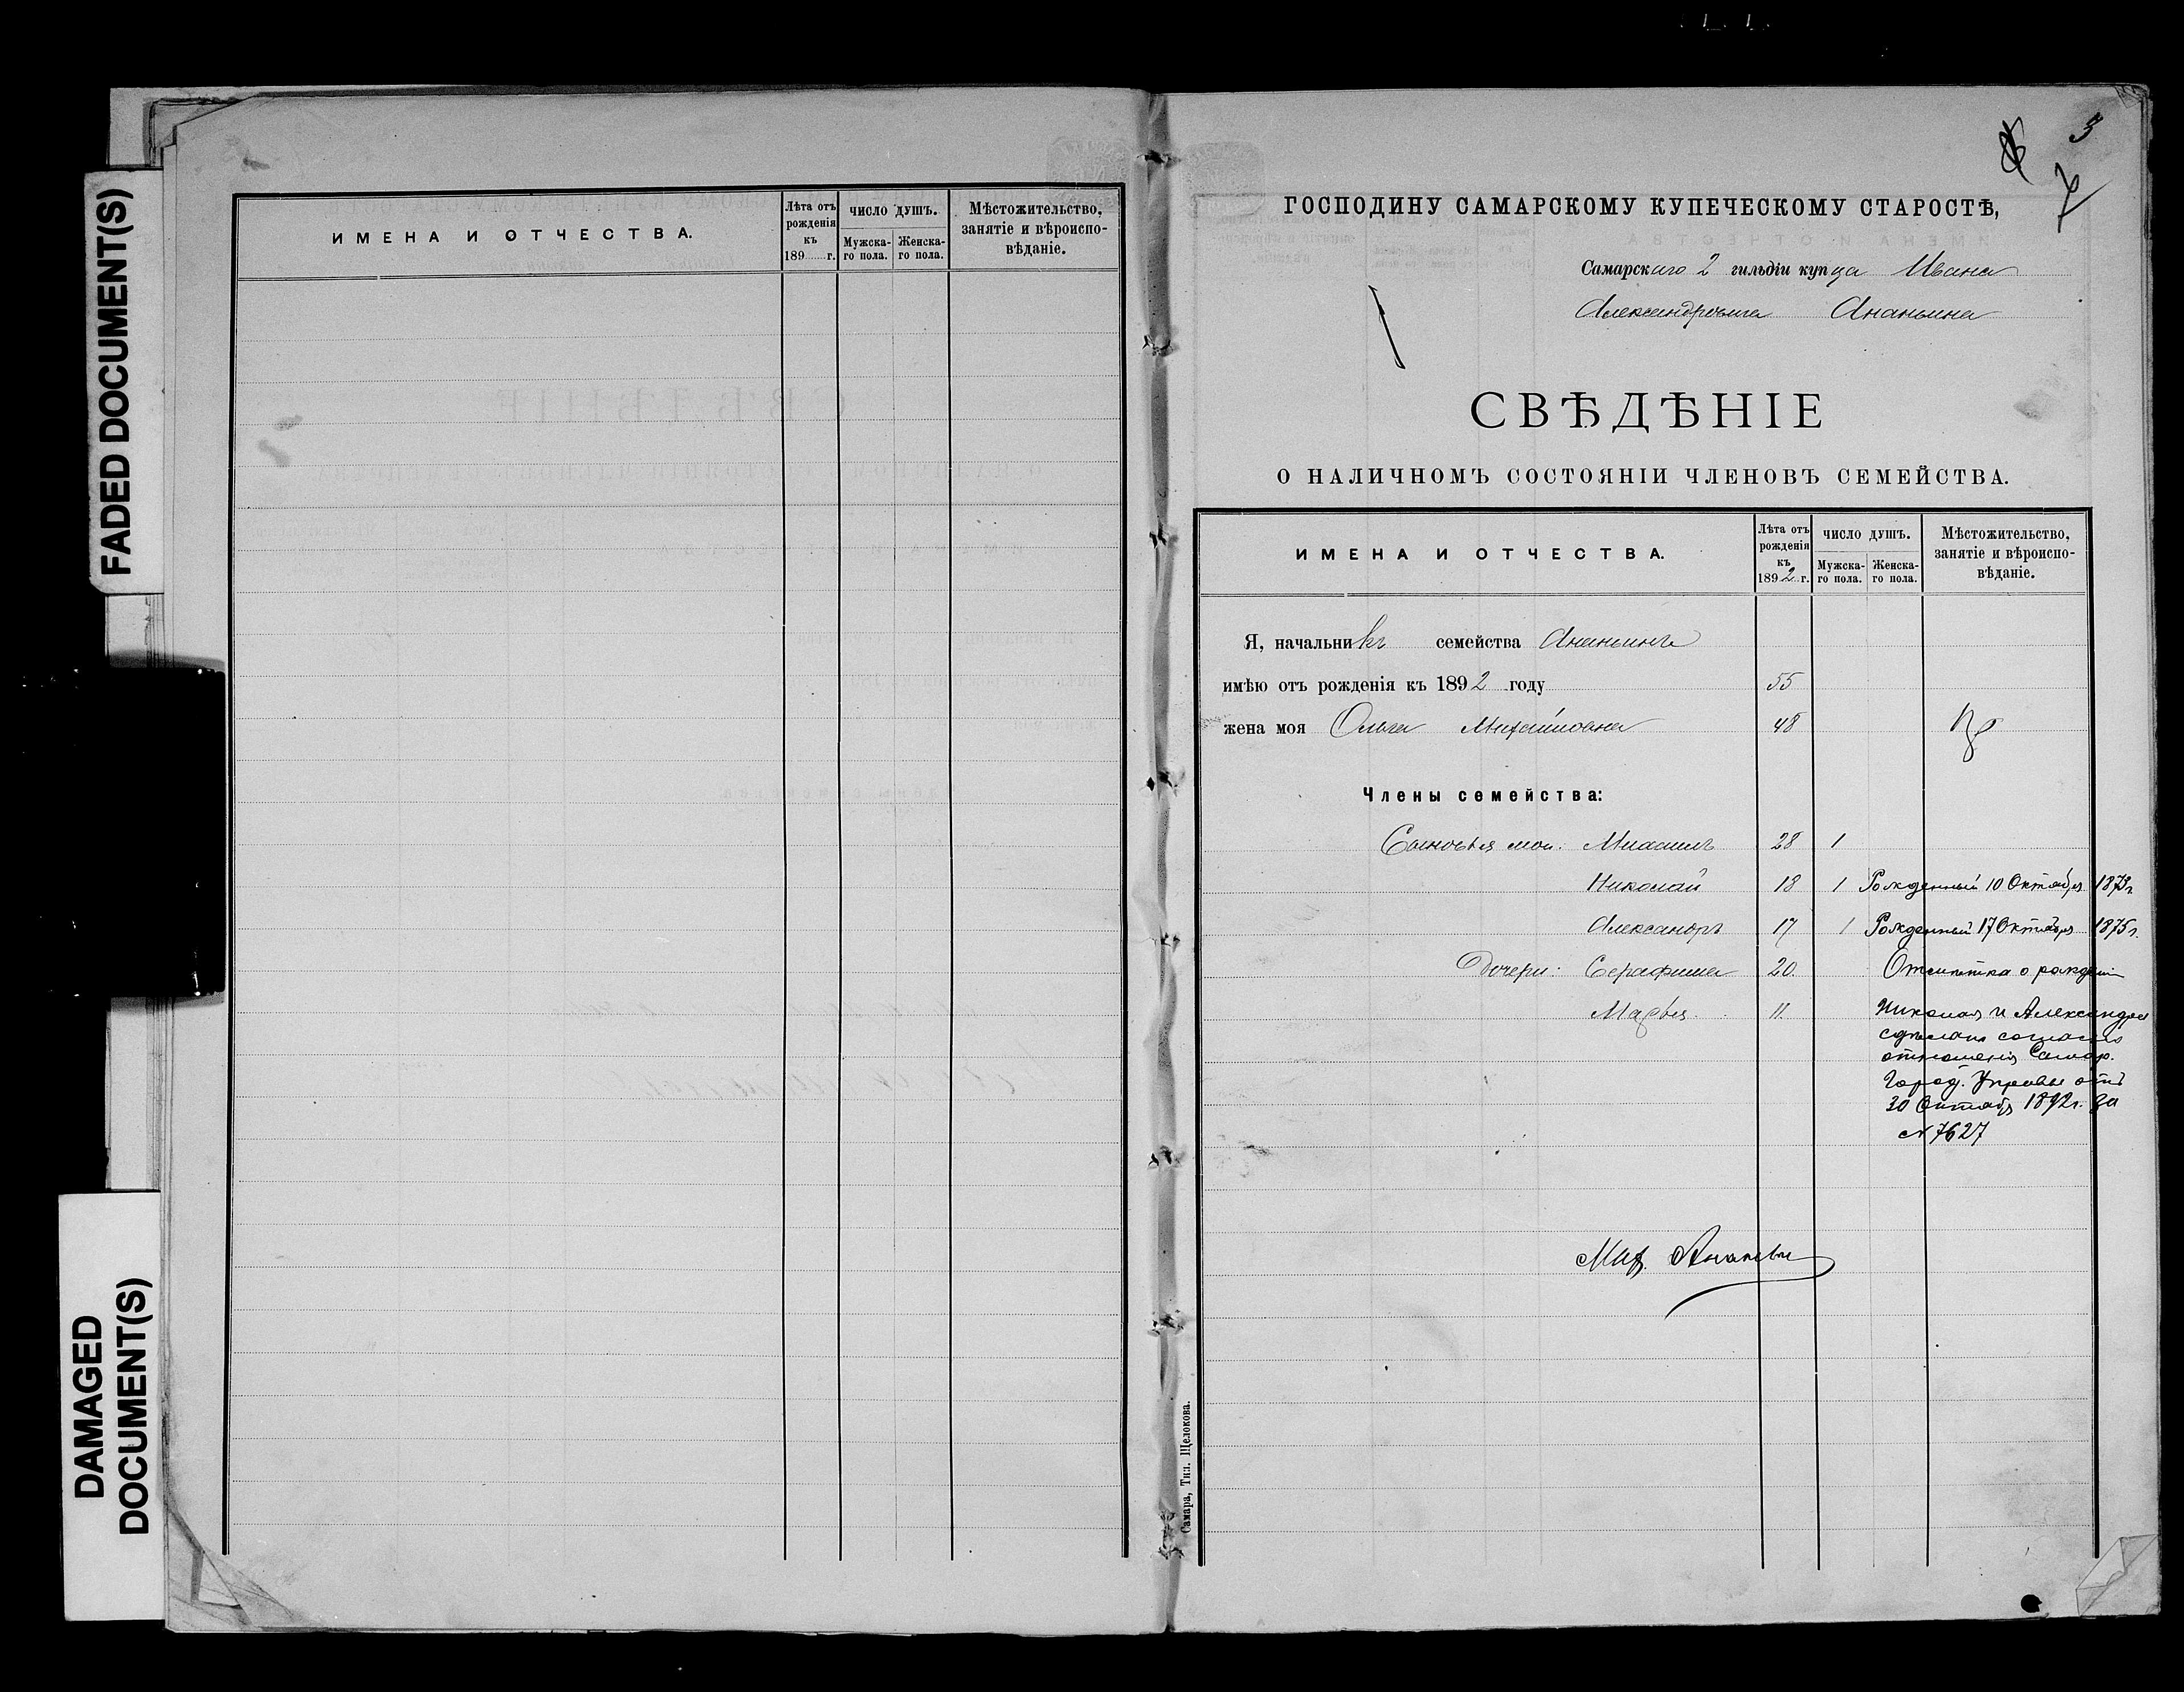 FADED DOCUMENT(S)
DAMAGED
DOCUMENT(S)
ИМЕНА И ОТЧЕСТВА.
Лѣта отъ рожденія къ 189 г.
число душъ.
Мужска-го пола.
Женска-го пола.
Мѣстожительство, занятіе и вѣроиспо-вѣданіе.
3
7
ГОСПОДИНУ САМАРСКОМУ КУПЕЧЕСКОМУ СТАРОСТѢ,
Самарскаго 2 гильдіи купца Ивана
Александровича Ананьина
СВѢДѢНІЕ
О НАЛИЧНОМЪ СОСТОЯНІИ ЧЛЕНОВЪ СЕМЕЙСТВА.
ИМЕНА И ОТЧЕСТВА.
Лѣта отъ рожденія къ 1892 г.
число душъ.
Мужска-го пола.
Женска-го пола.
Мѣстожительство, занятіе и вѣроиспо-вѣданіе.
Я, начальникъ семейства Ананьинъ
имѣю отъ рожденія къ 1892 году 55
жена моя Ольга Михайловна 48
Члены семейства:
Сыновья мои: Михаилъ 28 1
Николай 18 1 Рожденный 10 Октября 1873 г.
Александръ 17 1 Рожденный 17 Октября 1875 г.
Дочери: Серафима 20.
Отмѣтка о рожденіи
Марья. 11.
Николая и Александра
сдѣлана согласно
отношенія Самар.
Город. Управы отъ
30 Октября 1892 г. за
№ 7627
Мих. Ананьин
Самара, Тип. Щелокова.